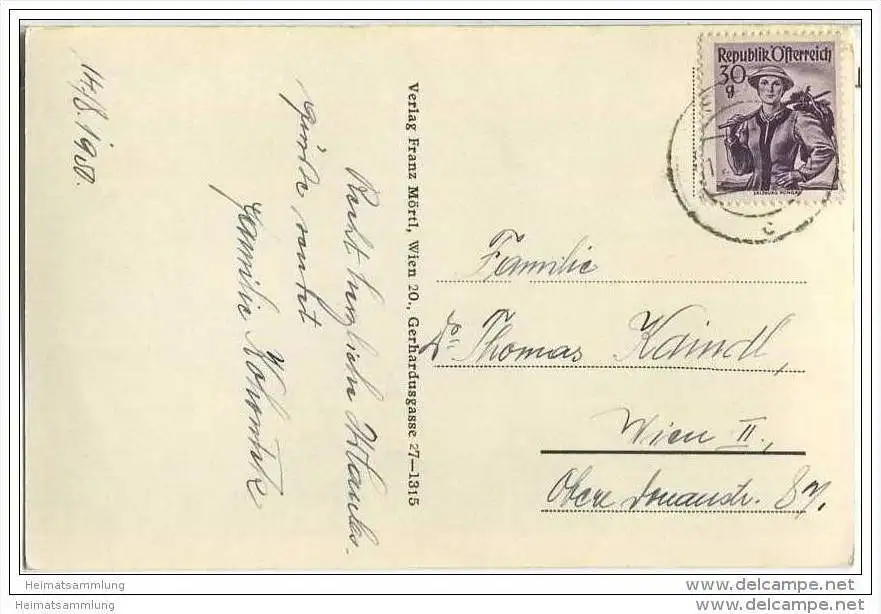 14.8.1950.
Recht herzliche Urlaubs-
grüße sendet
Familie
Verlag Franz Mörtl, Wien 20., Gerhardusgasse 27—1315
Republik Österreich
30
g
SALZBURG, PONGAU
c
Familie
Dr. Thomas Kaindl,
Wien II.,
Obere Donaustr. 87.
Heimatsammlung
Heimatsammlung
www.delcampe.net
www.delcampe.net